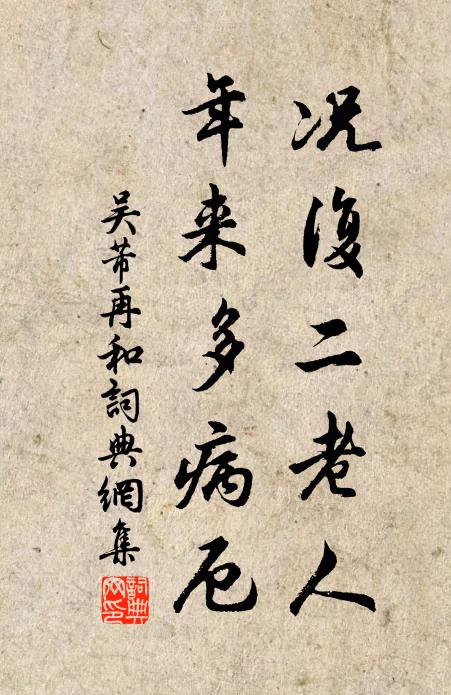 况復二老人
年来多病厄
吴芾再和詞典網集
詞典
网印